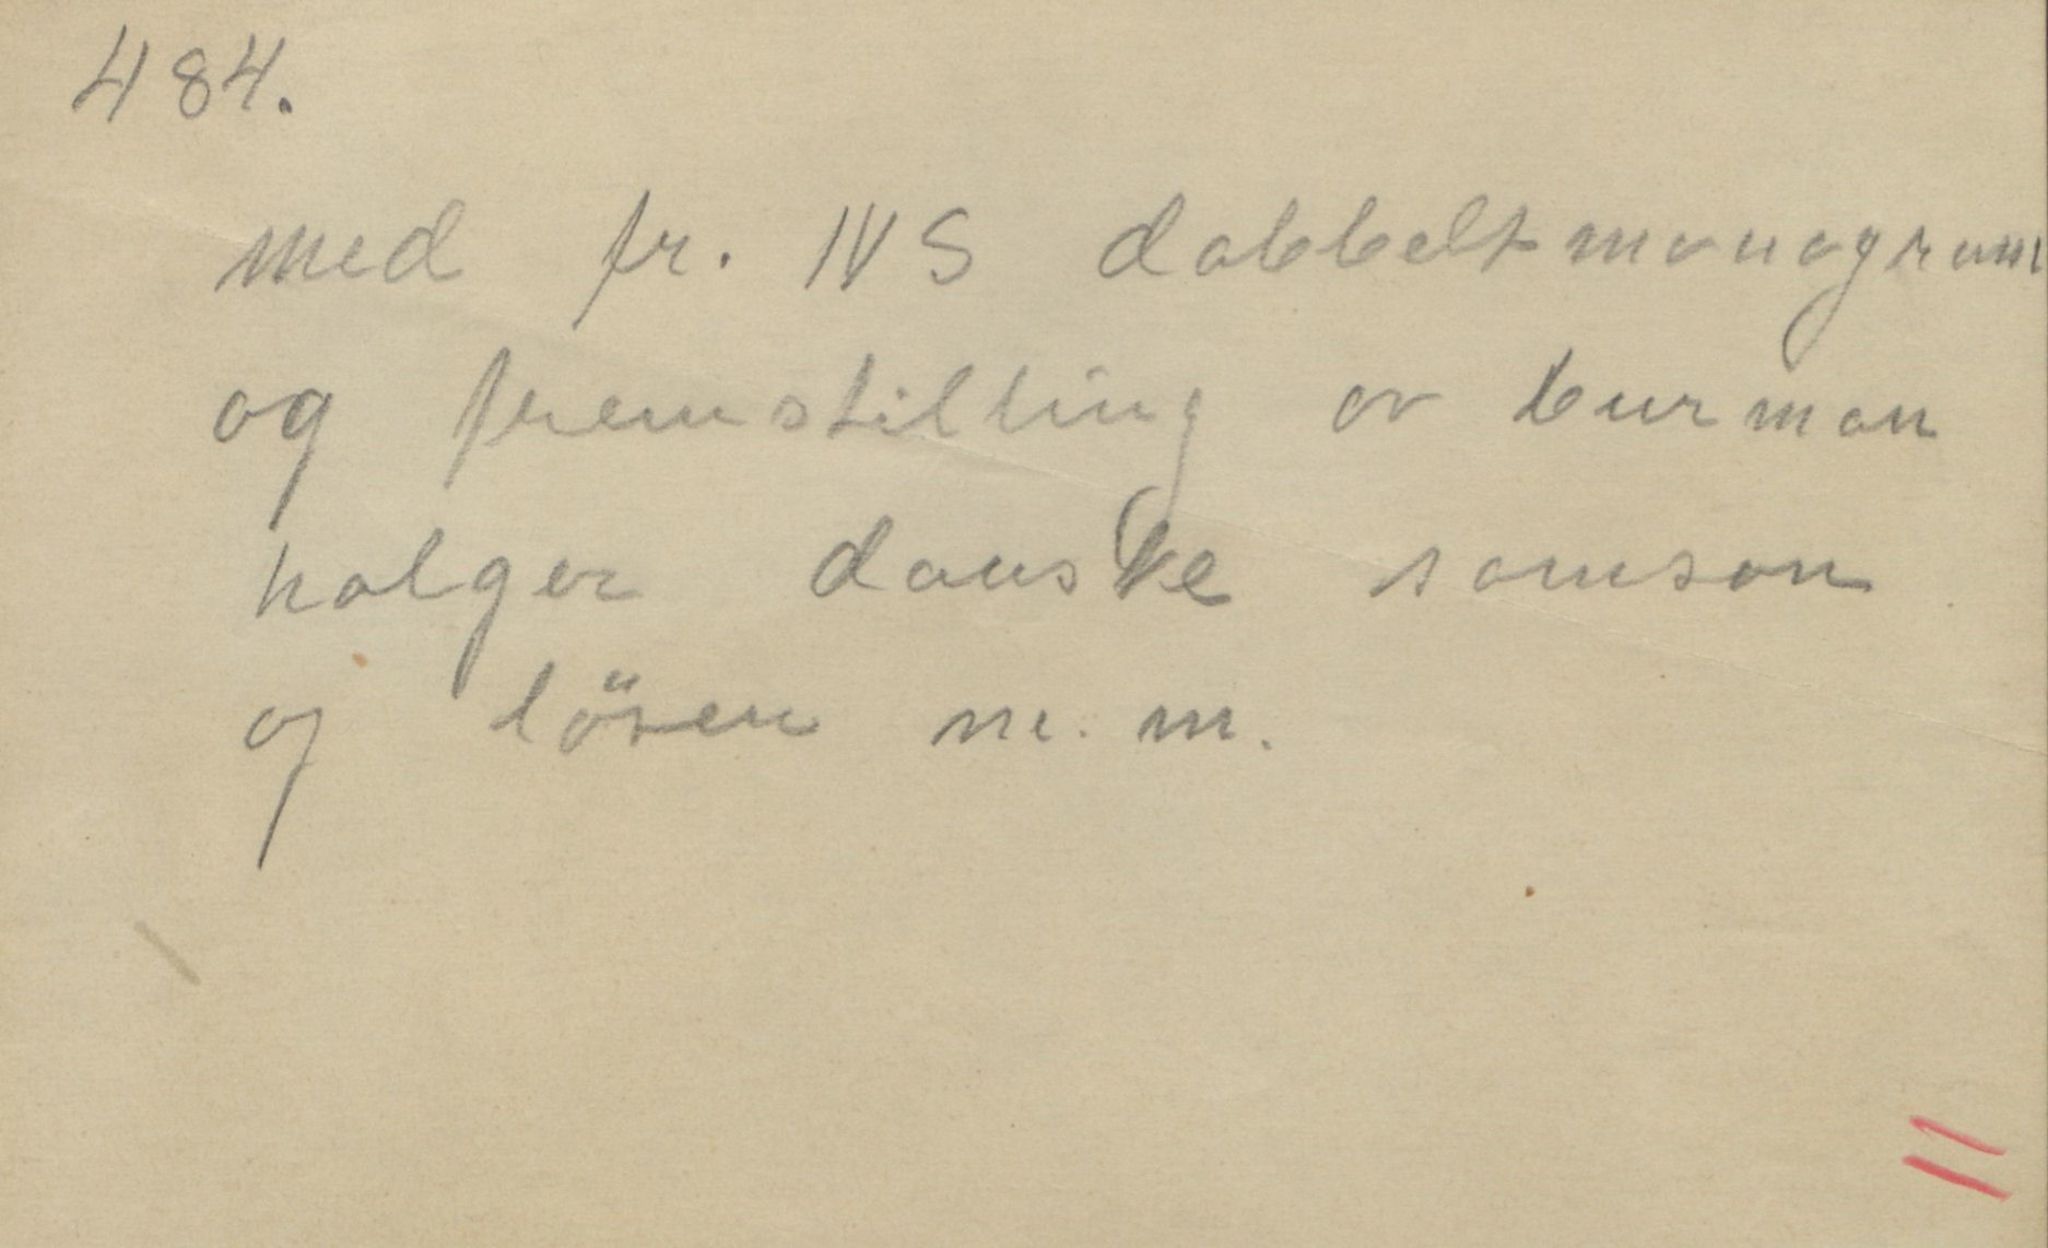 484.
med fr. IVS dobbeltmonogram
og fremstilling av burman
holger danske samson
og löven m.m.